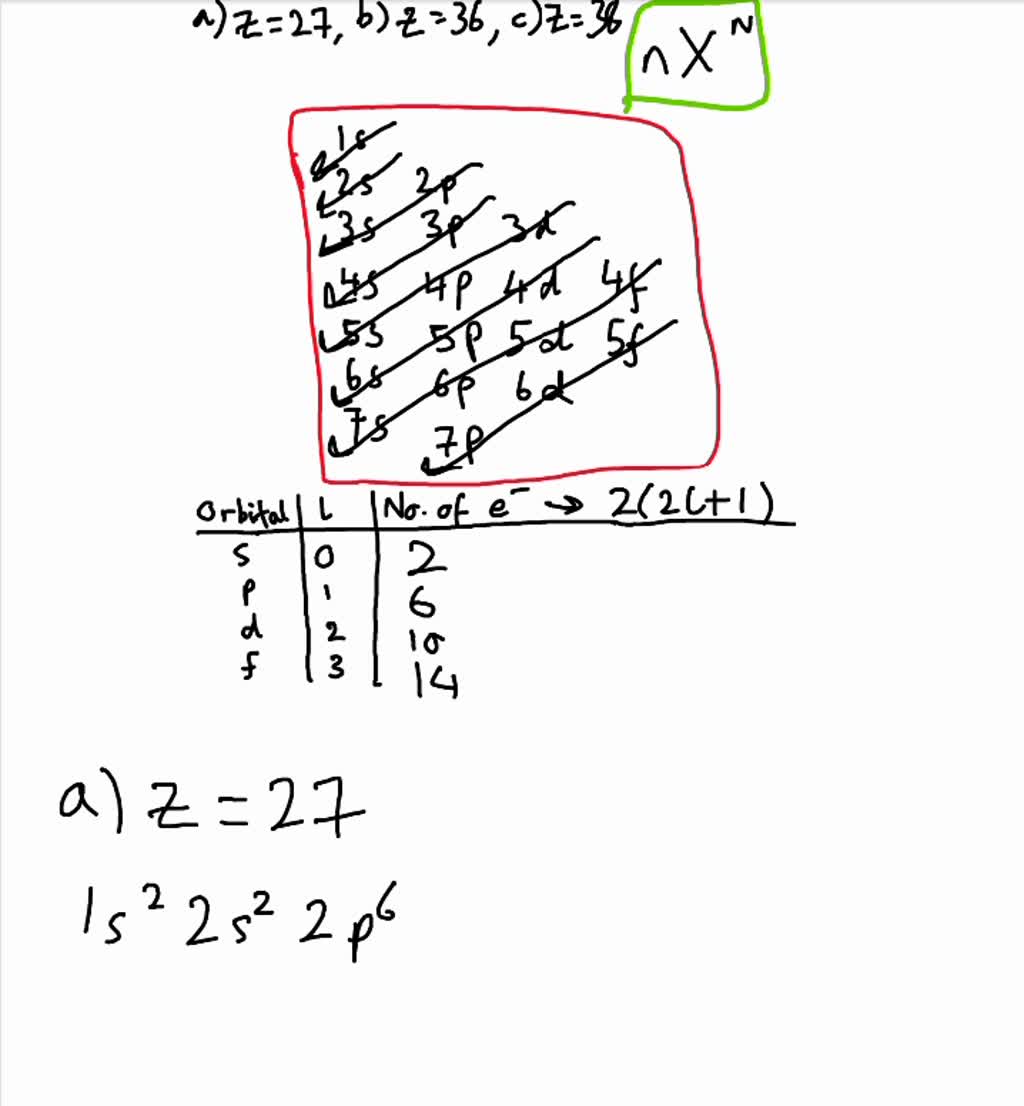 a) Z=27, b) Z=36, c) Z=38
n X ᴺ
1s
2s 2p
3s 3p 3d
4s 4p 4d 4f
5s 5p 5d 5f
6s 6p 6d
7s 7p
Orbital | l | No. of e⁻ → 2(2l+1)
s 0 2
p 1 6
d 2 10
f 3 14
a) Z = 27
1s² 2s² 2p⁶